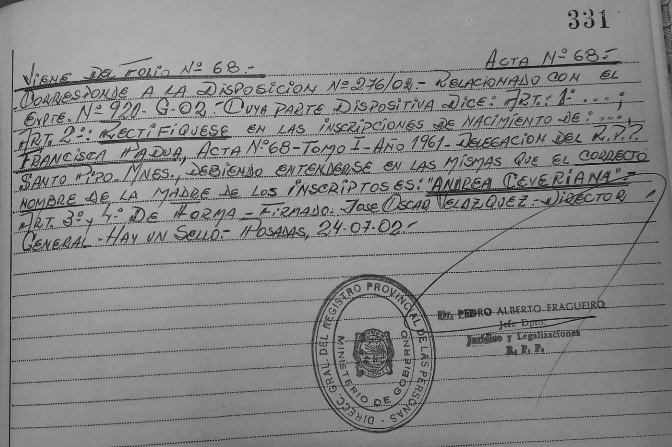 331
VIENE DEL FOLIO Nº 68.- ACTA Nº 68.-
CORRESPONDE A LA DISPOSICION Nº 276/02.- RELACIONADO CON EL
EXPTE. Nº 920-G-02.- CUYA PARTE DISPOSITIVA DICE: ART. 1º ...;
ART. 2º: RECTIFIQUESE EN LAS INSCRIPCIONES DE NACIMIENTO DE: ...,
FRANCISCA PADUA, ACTA Nº 68-TOMO I-AÑO 1961-DELEGACION DEL R.P.P.
SANTO PIPO. MNES., DEBIENDO ENTENDERSE EN LAS MISMAS QUE EL CORRECTO
NOMBRE DE LA MADRE DE LOS INSCRIPTOS ES: "ANDREA CEVERIANA"=
ART. 3º y 4º DE FORMA - FIRMADO. JOSE OSCAR VELAZQUEZ.- DIRECTOR
GENERAL - HAY UN SELLO.- POSADAS, 24-07-02.-
DIREC. GRAL. DEL REGISTRO PROVINCIAL DE LAS PERSONAS -
MINISTERIO DE GOBIERNO
Dr. PEDRO ALBERTO FRAGUEIRO
Jefe Dpto.
Jurídico y Legalizaciones
R. P. P.